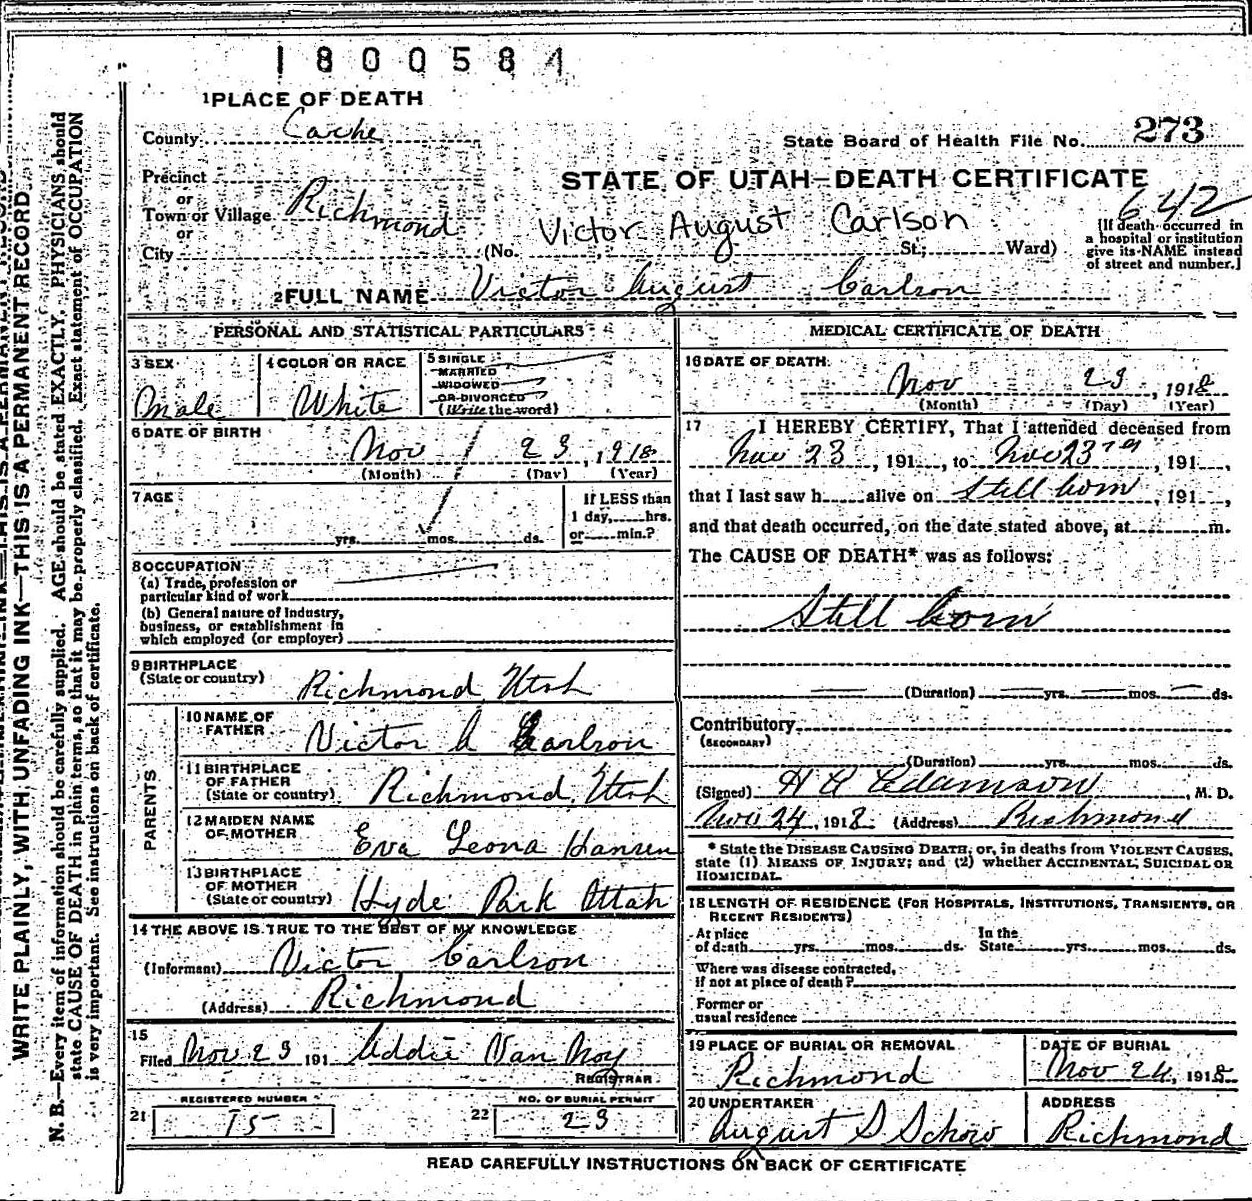 1800584
1 PLACE OF DEATH
County Cache
State Board of Health File No. 273
Precinct
or
Town or Village Richmond
or
City
STATE OF UTAH—DEATH CERTIFICATE
642
Victor August Carlson
(No. St; Ward)
[If death occurred in
a hospital or institution
give its NAME instead
of street and number.]
2 FULL NAME Victor August Carlson
PERSONAL AND STATISTICAL PARTICULARS
3 SEX
Male
4 COLOR OR RACE
White
5 SINGLE
MARRIED
WIDOWED
OR DIVORCED
(Write the word)
6 DATE OF BIRTH
Nov 23, 1918
(Month) (Day) (Year)
7 AGE
yrs. mos. ds.
If LESS than
1 day, hrs.
or min.?
8 OCCUPATION
(a) Trade, profession or
particular kind of work
(b) General nature of Industry,
business, or establishment in
which employed (or employer)
9 BIRTHPLACE
(State or country) Richmond Utah
PARENTS
10 NAME OF
FATHER Victor A Carlson
11 BIRTHPLACE
OF FATHER
(State or country) Richmond, Utah
12 MAIDEN NAME
OF MOTHER Eva Leona Hansen
13 BIRTHPLACE
OF MOTHER
(State or country) Hyde Park Utah
14 THE ABOVE IS TRUE TO THE BEST OF MY KNOWLEDGE
(Informant) Victor Carlson
(Address) Richmond
15
Filed Nov 23 191 Addie Van Noy
REGISTRAR
REGISTERED NUMBER
21 15
NO. OF BURIAL PERMIT
22 23
MEDICAL CERTIFICATE OF DEATH
16 DATE OF DEATH
Nov 23, 1918
(Month) (Day) (Year)
17 I HEREBY CERTIFY, That I attended deceased from
Nov 23, 191 , to Nov 23rd, 191 ,
that I last saw h alive on Still born, 191 ,
and that death occurred, on the date stated above, at m.
The CAUSE OF DEATH* was as follows:
Still born
(Duration) yrs. mos. ds.
Contributory
(SECONDARY)
(Duration) yrs. mos. ds.
(Signed) H A Adamson, M. D.
Nov 24, 1918 (Address) Richmond
* State the DISEASE CAUSING DEATH, or, in deaths from VIOLENT CAUSES,
state (1) MEANS OF INJURY; and (2) whether ACCIDENTAL, SUICIDAL OR
HOMICIDAL.
18 LENGTH OF RESIDENCE (FOR HOSPITALS, INSTITUTIONS, TRANSIENTS, OR
RECENT RESIDENTS)
At place
of death yrs. mos. ds.
In the
State yrs. mos. ds.
Where was disease contracted,
if not at place of death?
Former or
usual residence
19 PLACE OF BURIAL OR REMOVAL
Richmond
DATE OF BURIAL
Nov 24, 1918
20 UNDERTAKER
August S Schow
ADDRESS
Richmond
READ CAREFULLY INSTRUCTIONS ON BACK OF CERTIFICATE
WRITE PLAINLY, WITH UNFADING INK—THIS IS A PERMANENT RECORD
N. B.—Every item of information should be carefully supplied. AGE should be stated EXACTLY. PHYSICIANS should
state CAUSE OF DEATH in plain terms, so that it may be properly classified. Exact statement of OCCUPATION
is very important. See instructions on back of certificate.